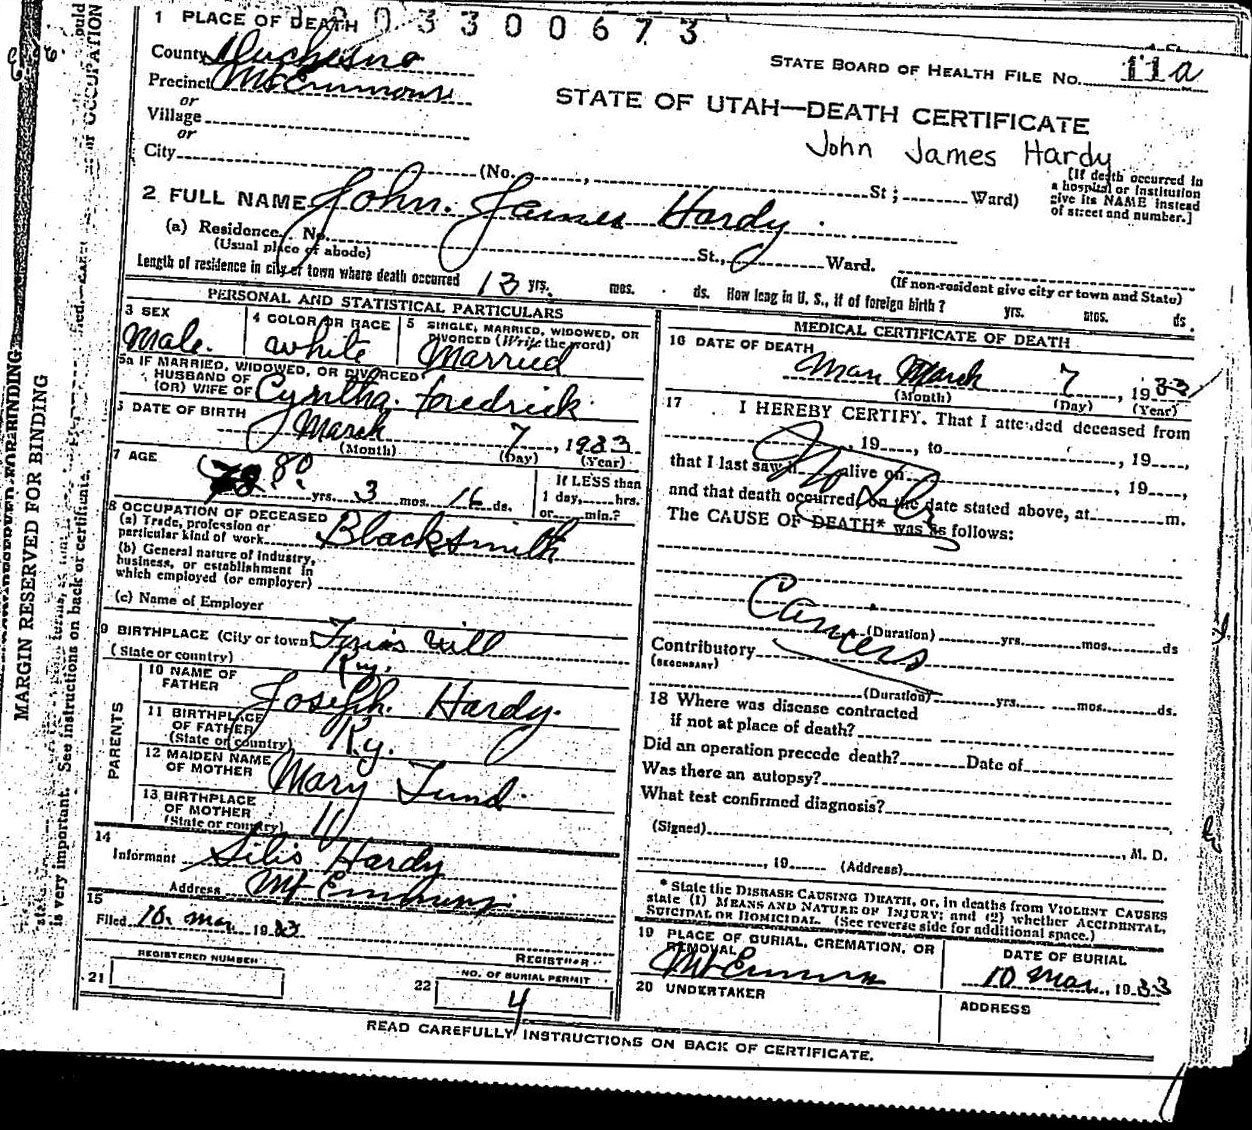 0 3 3 0 0 6 7 3
1 PLACE OF DEATH
County Duchesne
STATE BOARD OF HEALTH FILE No. 11a
Precinct Mt Emmons
or
Village
or
City
STATE OF UTAH—DEATH CERTIFICATE
John James Hardy
(No. , St ; Ward)
[If death occurred in
a hospital or institution
give its NAME instead
of street and number.]
2 FULL NAME John. James Hardy.
(a) Residence. No. St., Ward.
(Usual place of abode)
(If non-resident give city or town and State)
Length of residence in city or town where death occurred 13 yrs. mos. ds. How long in U. S., if of foreign birth? yrs. mos. ds.
PERSONAL AND STATISTICAL PARTICULARS
3 SEX
Male.
4 COLOR OR RACE
white
5 SINGLE, MARRIED, WIDOWED, OR
DIVORCED (Write the word)
Married
5a IF MARRIED, WIDOWED, OR DIVORCED
HUSBAND OF
(OR) WIFE OF Cyntha. Foredrick
6 DATE OF BIRTH
March 7, 1933
(Month) (Day) (Year)
7 AGE
80 yrs. 3 mos. 16 ds.
If LESS than
1 day, hrs.
or min.?
8 OCCUPATION OF DECEASED
(a) Trade, profession or
particular kind of work Blacksmith
(b) General nature of industry,
business, or establishment in
which employed (or employer)
(c) Name of Employer
9 BIRTHPLACE (City or town) Hill
(State or country) Ky.
PARENTS
10 NAME OF
FATHER Joseph. Hardy.
11 BIRTHPLACE
OF FATHER
(State or country) Ky.
12 MAIDEN NAME
OF MOTHER Mary
13 BIRTHPLACE
OF MOTHER
(State or country) "
14
Informant Silis Hardy
Address Mt Emmons
15
Filed 10. Mar. 1933
REGISTRAR
REGISTERED NUMBER
21
22
NO. OF BURIAL PERMIT
4
MEDICAL CERTIFICATE OF DEATH
16 DATE OF DEATH
Mar March 7, 1933
(Month) (Day) (Year)
17 I HEREBY CERTIFY, That I attended deceased from
, 19 , to , 19 ,
that I last saw h alive on , 19 ,
and that death occurred, on the date stated above, at m.
No Dr
The CAUSE OF DEATH* was as follows:
Cancers
(Duration) yrs. mos. ds
Contributory
(SECONDARY)
(Duration) yrs. mos. ds.
18 Where was disease contracted
if not at place of death?
Did an operation precede death? Date of
Was there an autopsy?
What test confirmed diagnosis?
(Signed) , M. D.
, 19 (Address)
* State the DISEASE CAUSING DEATH, or, in deaths from VIOLENT CAUSES
state (1) MEANS AND NATURE OF INJURY; and (2) whether ACCIDENTAL,
SUICIDAL OR HOMICIDAL. (See reverse side for additional space.)
19 PLACE OF BURIAL, CREMATION, OR
REMOVAL
Mt Emmons
DATE OF BURIAL
10 Mar., 1933
20 UNDERTAKER
ADDRESS
READ CAREFULLY INSTRUCTIONS ON BACK OF CERTIFICATE.
MARGIN RESERVED FOR BINDING
is very important. See instructions on back of certificate.
of OCCUPATION